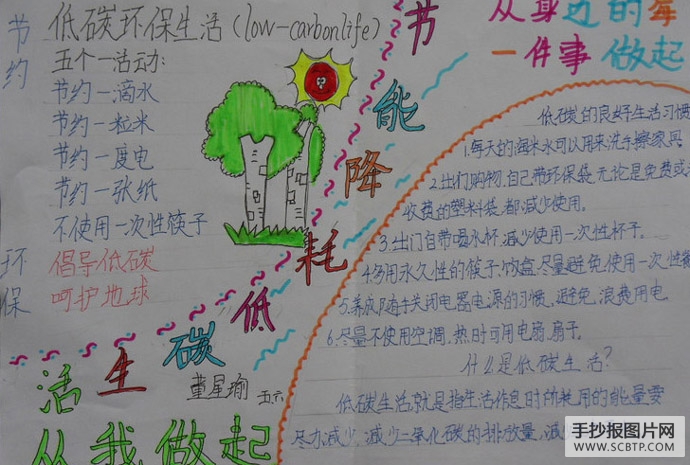 节约
环保
低碳环保生活(low-carbonlife)
五个一活动:
节约一滴水
节约一粒米
节约一度电
节约一张纸
不使用一次性筷子
倡导低碳
呵护地球
节能降耗低碳生活
从我做起
董星瑜 五六
从身边的每
一件事 做起
低碳的良好生活习惯
1.每天的淘米水可以用来洗手擦家具
2.出们购物,自己带环保袋,无论是免费或
收费的塑料袋,都减少使用。
3.出门自带喝水杯,减少使用一次性杯子。
4.多用永久性的筷子,饭盒,尽量避免使用一次性
5.养成随手关闭电器电源的习惯,避免浪费用电
6.尽量不使用空调,热时可用电扇,扇子。
什么是低碳生活?
低碳生活,就是指生活作息时所耗用的能量要
尽力减少,减少二氧化碳的排放量,减
手抄报图片网
WWW.SCBTP.COM